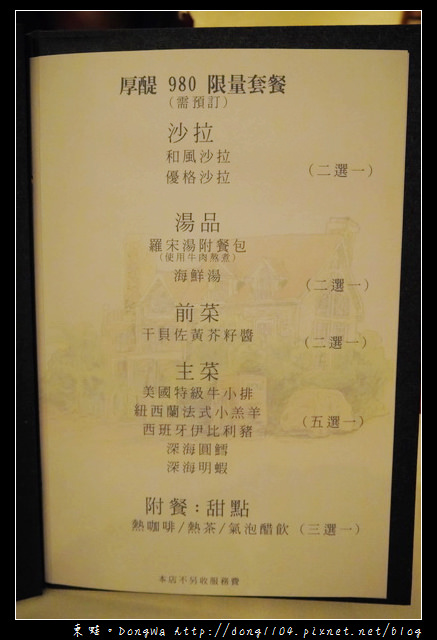 厚醍 980 限量套餐
(需預訂)
沙拉
和風沙拉
優格沙拉
(二選一)
湯品
羅宋湯附餐包
(使用牛肉熬煮)
海鮮湯
(二選一)
前菜
干貝佐黃芥籽醬
(二選一)
主菜
美國特級牛小排
紐西蘭法式小羔羊
西班牙伊比利豬
(五選一)
深海圓鱈
深海明蝦
附餐:甜點
熱咖啡/熱茶/氣泡醋飲 (三選一)
本店不另收服務費
東蛙。DongWa http://dong1104.pixnet.net/blog